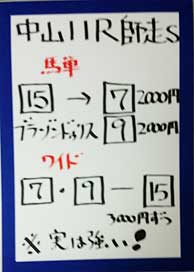 中山11R師走S
馬単
15 → 7 2000円
ブラゾンドゥリス 9 2000円
ワイド
7・9－15
3000円ずつ
※実は強い!